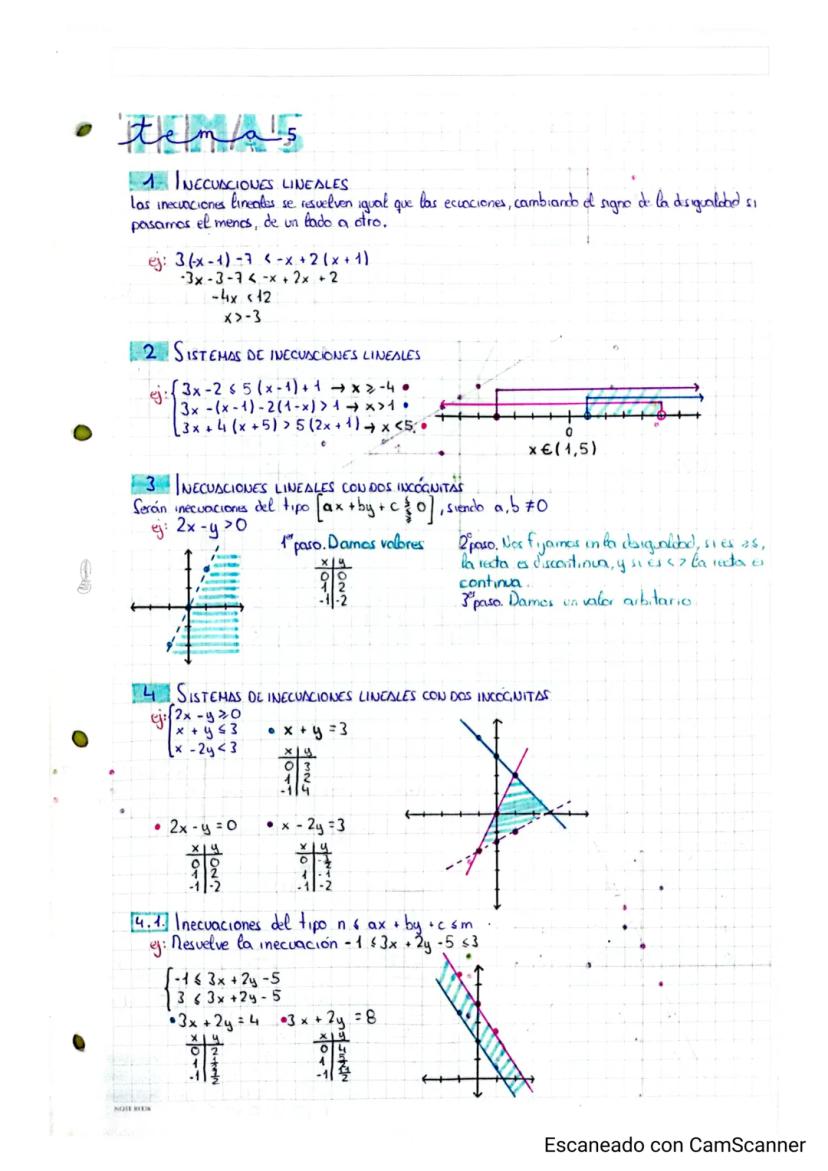 tema 5
1 INECUACIONES LINEALES
Las inecuaciones lineales se resuelven igual que las ecuaciones, cambiando el signo de la desigualdad si
pasamos el menos, de un lado a otro.
ej: 3(-x-1)-7 < -x+2(x+1)
-3x-3-7 < -x+2x+2
-4x < 12
x > -3
2 SISTEMAS DE INECUACIONES LINEALES
ej: 3x-2 ≤ 5(x-1)+1 → x ≥ -4
3x-(x-1)-2(1-x) > 1 → x > 1
3x+4(x+5) > 5(2x+1) → x < 5
0
x ∈ (1,5)
3 INECUACIONES LINEALES CON DOS INCÓGNITAS
Serán inecuaciones del tipo [ax+by+c 0], siendo a,b ≠ 0
ej: 2x-y > 0
1er paso. Damos valores
x | y
0 | 0
1 | 2
-1 | -2
2º paso. Nos fijamos en la desigualdad, si es ≥≤,
la recta es discontinua, y si es < > la recta es
continua.
3er paso. Damos un valor arbitario.
4 SISTEMAS DE INECUACIONES LINEALES CON DOS INCÓGNITAS
ej: 2x-y ≥ 0
x+y ≤ 3
x-2y < 3
x+y=3
x | y
0 | 3
1 | 2
-1 | 4
2x-y=0
x | y
0 | 0
1 | 2
-1 | -2
x-2y=3
x | y
0 | -3/2
1 | -1
-1 | -2
4.1. Inecuaciones del tipo n ≤ ax+by+c ≤ m
ej: Resuelve la inecuación -1 ≤ 3x+2y-5 ≤ 3
-1 ≤ 3x+2y-5
3 ≤ 3x+2y-5
3x+2y=4
x | y
0 | 2
1 | 1/2
-1 | 7/2
3x+2y=8
x | y
0 | 4
1 | 5/2
-1 | 11/2
NOTE BOOK
Escaneado con CamScanner